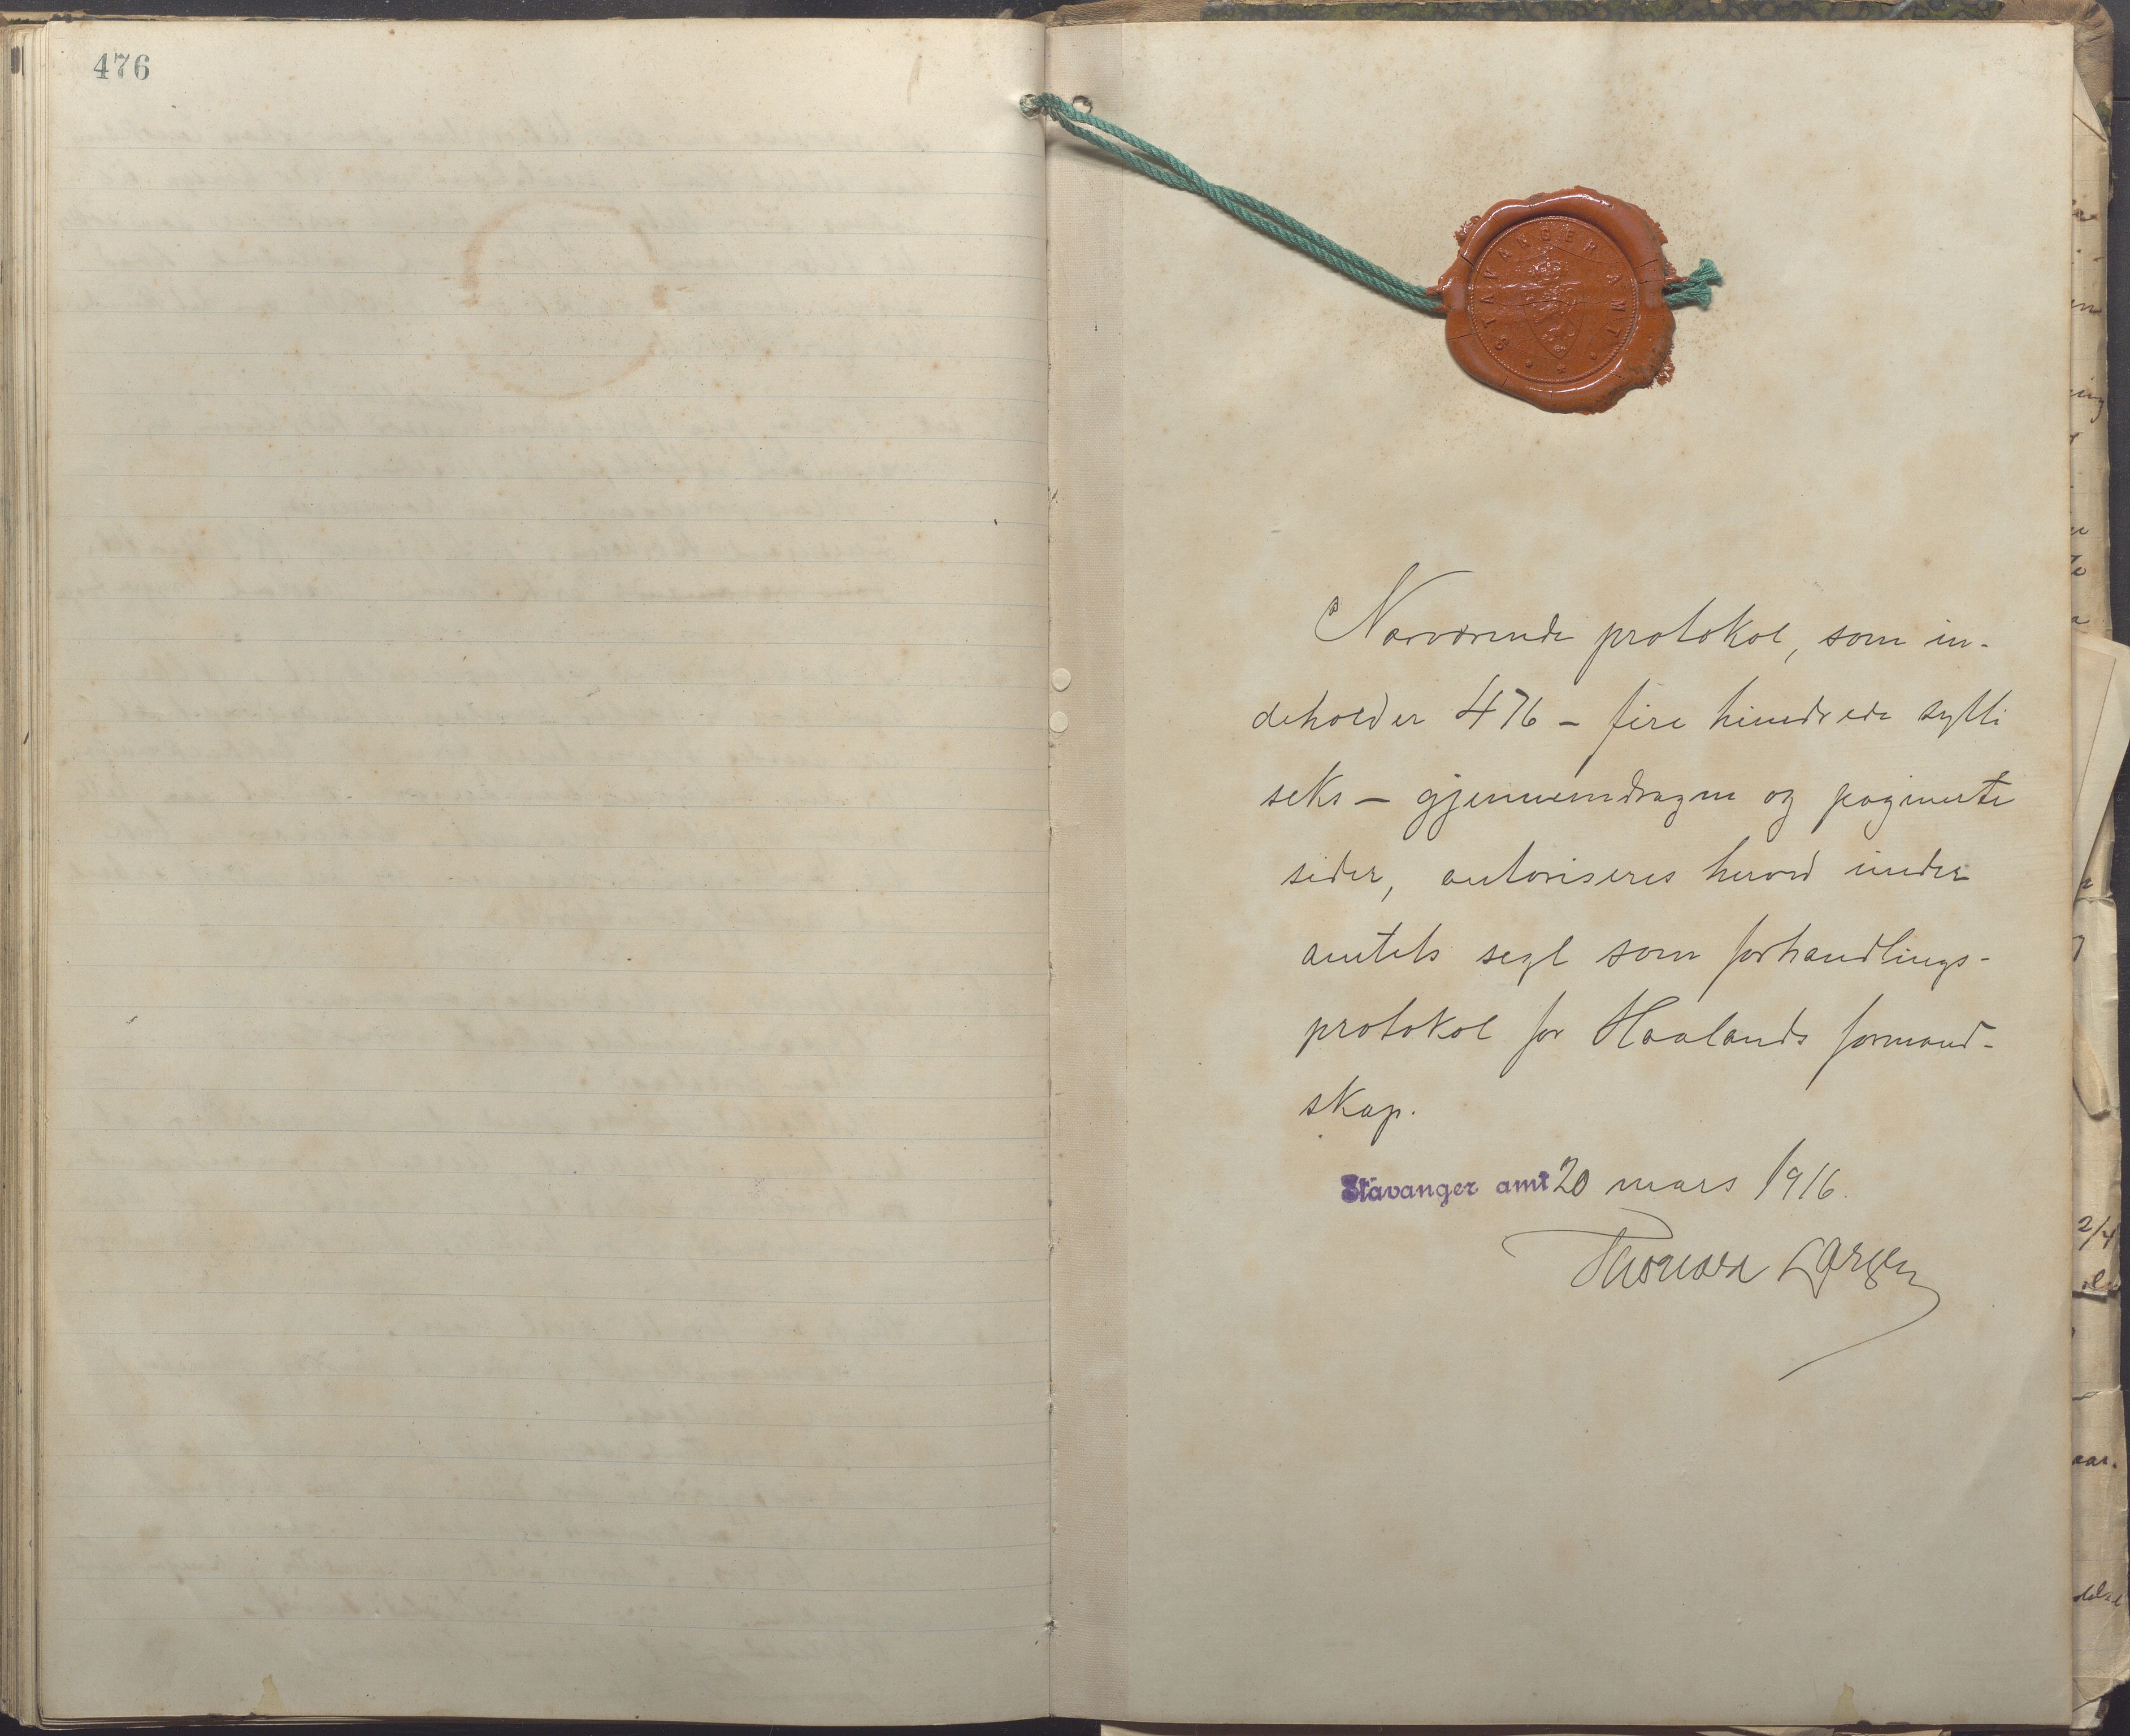 476
STAVANGER AMT
Nærværende protokol, som in-
deholder 476 - fire hundrede sytti
seks - gjennemdragne og paginerte
sider, autoriseres herved under
amtets segl som forhandlings-
protokol for Haalands formand-
skap.
Stavanger amt 20 mars 1916.
Thorvald Larsen
2/4
aar.